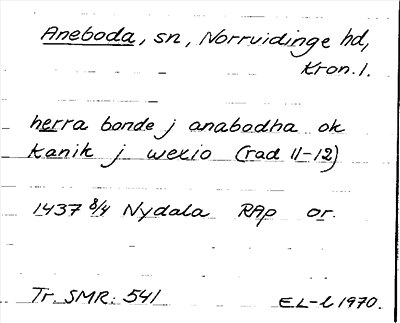 Aneboda, sn, Norrvidinge hd,
Kron. l.
herra bonde j anabodha ok
kanik j wexio (rad 11-12)
1437 8/4 Nydala RAp or.
Tr. SMR: 541 EL-l 1970.